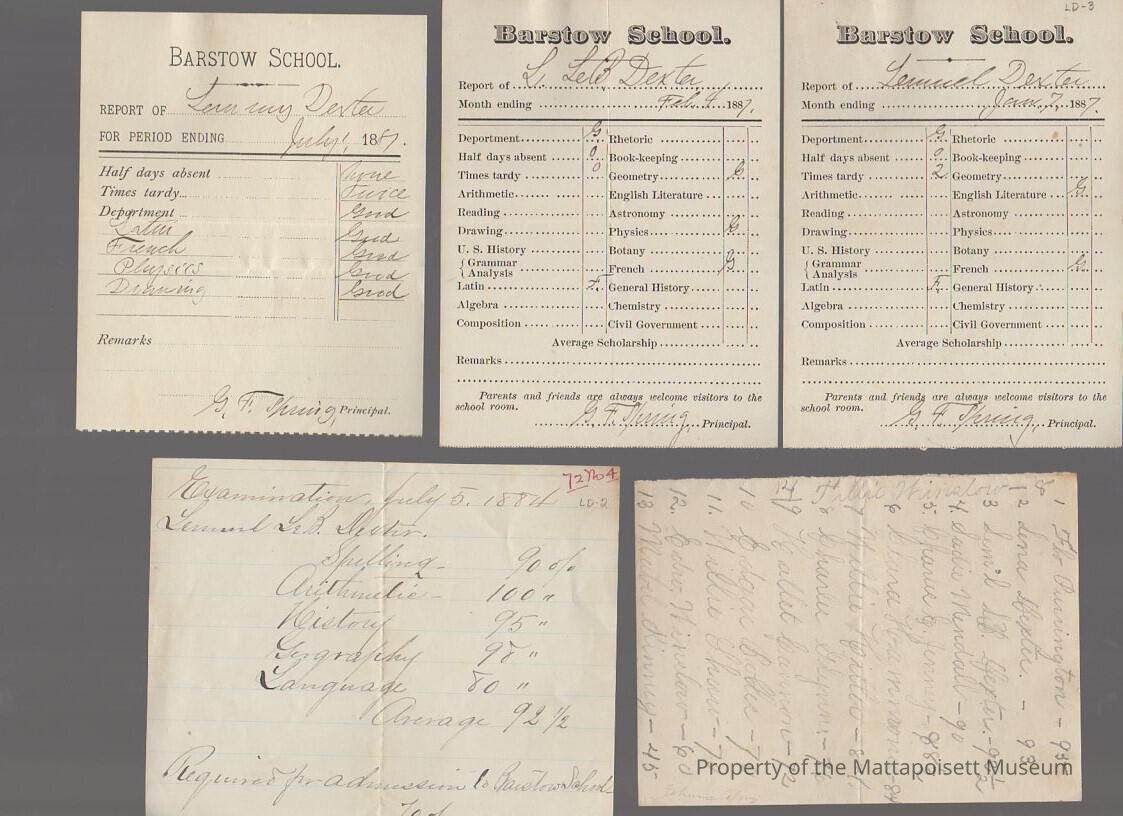 BARSTOW SCHOOL.
REPORT OF Lemmy Dexter
FOR PERIOD ENDING July 1, 1887.
Half days absent None
Times tardy... Twice
Department Good
Latin Good
French Good
Physics Good
Drawing Good
Remarks
G. F. Principal.
Barstow School.
Report of L. LeB Dexter
Month ending Feb. 4. 1887.
Department G. Rhetoric
Half days absent 0 Book-keeping
Times tardy 0 Geometry G
Arithmetic English Literature
Reading Astronomy
Drawing Physics G.
U. S. History Botany
{ Grammar Analysis French G.
Latin F. General History
Algebra Chemistry
Composition Civil Government
Average Scholarship
Remarks
Parents and friends are always welcome visitors to the
school room.
G. F. Principal.
LD-3
Barstow School.
Report of Lemuel Dexter
Month ending Jan. 7, 1887.
Department G. Rhetoric
Half days absent 0 Book-keeping
Times tardy 2 Geometry
Arithmetic English Literature G.
Reading Astronomy
Drawing Physics
U. S. History Botany
{ Grammar Analysis French G.
Latin F. General History
Algebra Chemistry
Composition Civil Government
Average Scholarship
Remarks
Parents and friends are always welcome visitors to the
school room.
G. F. Principal.
LD-2
Examination, July 5. 1884
Lemuel LeB. Dexter.
Spelling 90 %
Arithmetic - 100 "
History 95 "
Geography 98 "
Language 80 "
Average 92 1/2
Required for admission to Barstow School
1 Purrington - 93
2 Lena Dexter. - 93
3 Lem'l LeB. Dexter. - 92 1/2
4 Sadie Mendall - 90
5 Charlie
6 Clara Hammond - 84
7 Nellie
8 Charles
9
10 Edgar
11. Willie
12. Winslow - 60
13 Mabel Kinney - 45
14 Winslow
Property of the Mattapoisett Museum